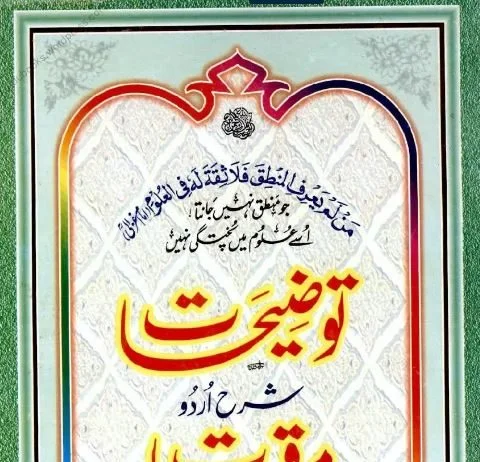 مَنْ لَمْ يَعْرِفِ الْمَنْطِقَ فَلَا ثِقَةَ لَهُ فِي الْعُلُوْمِ
جو منطق نہیں جانتا
اُسے علوم میں پختگی نہیں
توضیحات
شرح اُردو